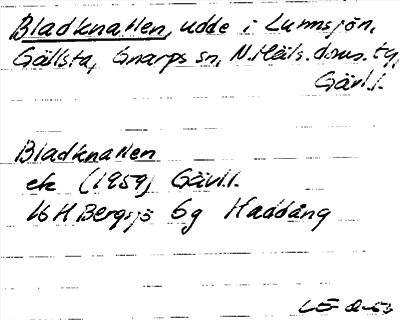 Bladknallen, udde i Lumsjön,
Gällsta, Gnarps sn, N.Häls. doms. tg,
Gävl.l.
Bladknallen
ek (1959) Gävl.l.
16 H Bergsjö 6g Haddång